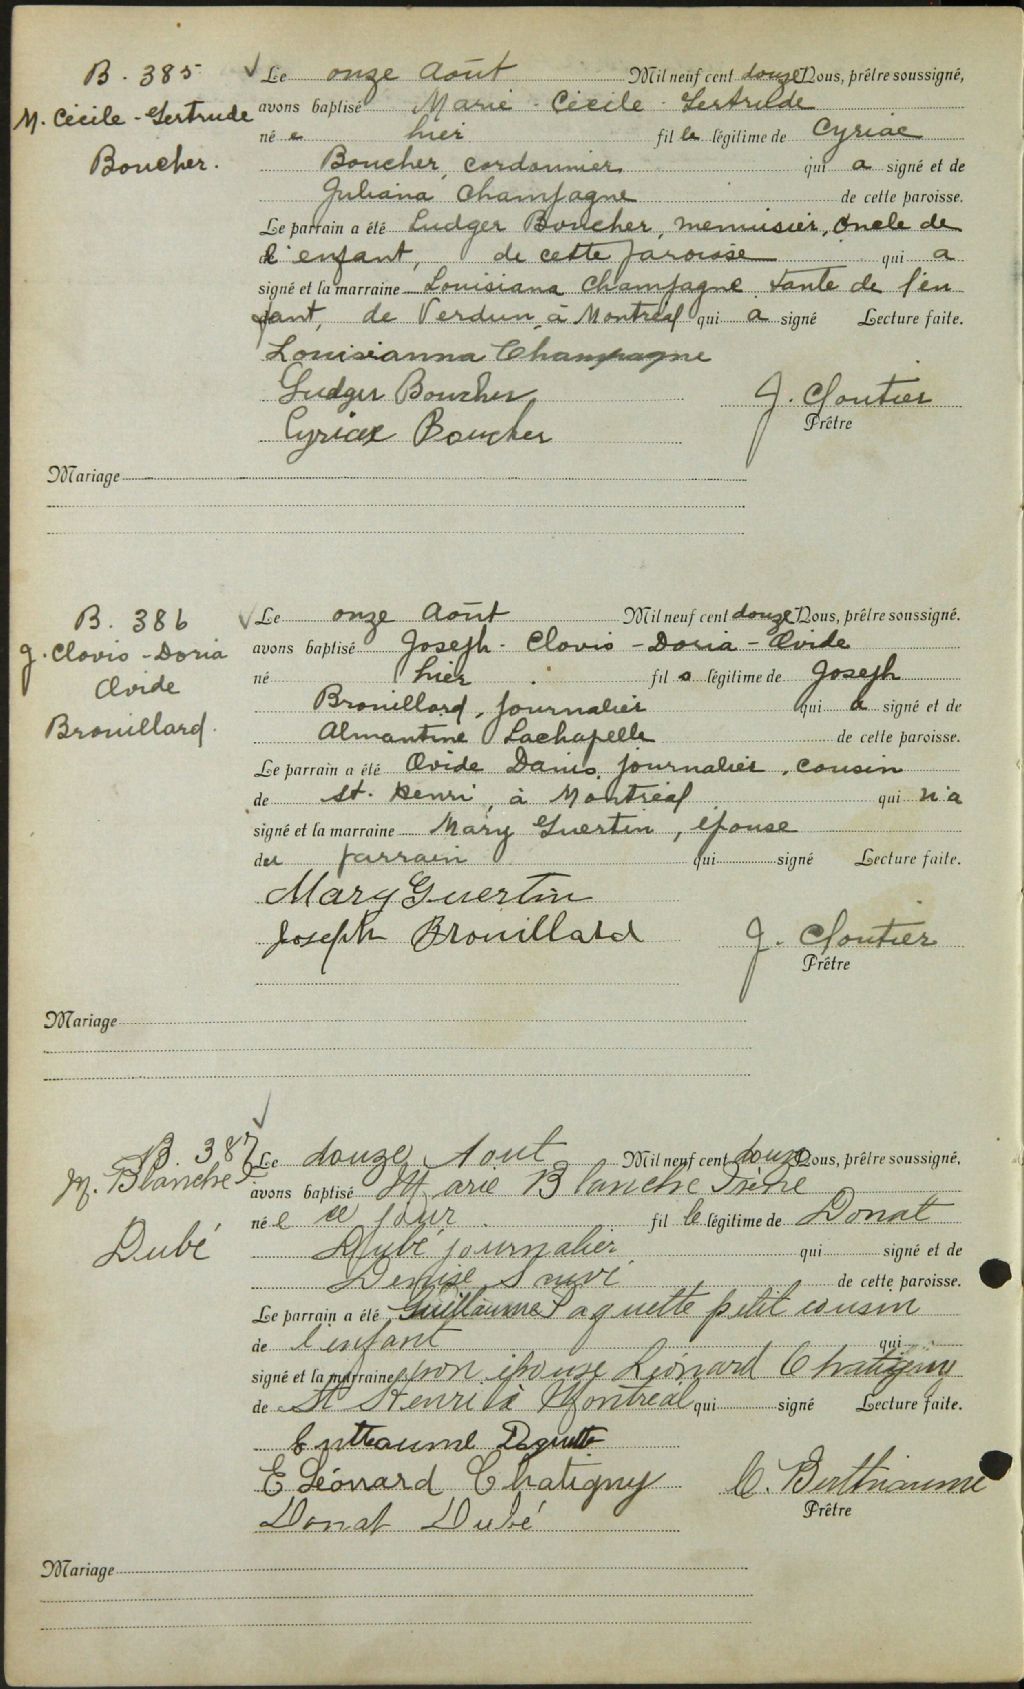 B. 385
M. Cécile-Gertrude
Boucher.
Le onze Août Mil neuf cent douze Nous, prêtre soussigné,
avons baptisé Marie-Cécile-Gertrude
né e hier fil le légitime de Cyriac
Boucher, cordonnier qui a signé et de
Juliana Champagne de cette paroisse.
Le parrain a été Ludger Boucher, menuisier, oncle de
l'enfant, de cette paroisse qui a
signé et la marraine Louisiana Champagne tante de l'en
fant, de Verdun, à Montréal qui a signé Lecture faite.
Louisianna Champagne
Ludger Boucher
Cyriac Boucher
J. Cloutier
Prêtre
Mariage
B. 386
J. Clovis-Doria
Ovide
Brouillard.
Le onze Août Mil neuf cent douze Nous, prêtre soussigné.
avons baptisé Joseph-Clovis-Doria-Ovide
né hier fil s légitime de Joseph
Brouillard, journalier qui a signé et de
Almantine Lachapelle de cette paroisse.
Le parrain a été Ovide Danis, journalier, cousin
de St. Henri, à Montréal qui n'a
signé et la marraine Mary Guertin, épouse
du parrain qui signé Lecture faite.
Mary Guertin
Joseph Brouillard
J. Cloutier
Prêtre
Mariage
B. 387
M. Blanche I.
Dubé
Le douze Aout Mil neuf cent douze Nous, prêtre soussigné,
avons baptisé Marie Blanche Irène
né e ce jour fil le légitime de Donat
Dubé journalier qui signé et de
Denise de cette paroisse.
Le parrain a été Guillaume Paquette petit cousin
de l'enfant qui
signé et la marraine son épouse Léonard Chatigny
de St Henri à Montréal qui signé Lecture faite.
Paquette
E Léonard Chatigny
Donat Dubé
C. Berthiaume
Prêtre
Mariage